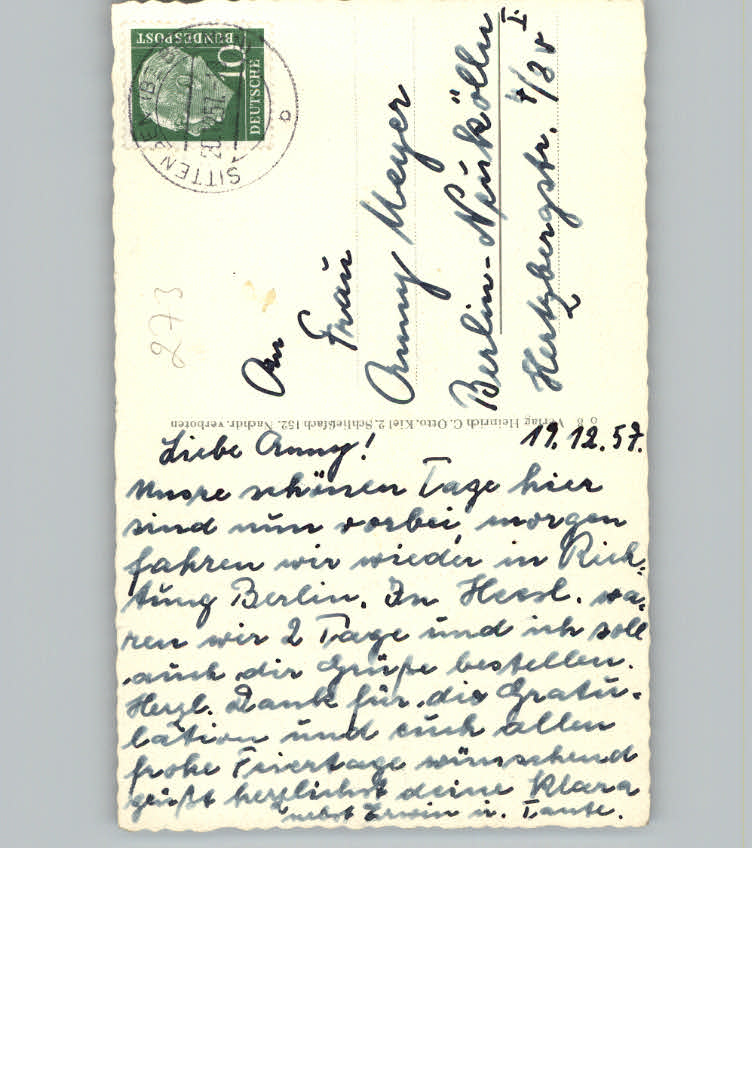 DEUTSCHE
BUNDESPOST
10
SITTENSEN
20.
273
An
Frau
Anny Meyer
Berlin-Neukölln
Hertzbergstr. 4/3 v I.
Verlag Heinrich C. Otto, Kiel 2, Schließfach 152. Nachdr. verboten
19.12.57.
Liebe Anny!
Unsre schönen Tage hier
sind nun vorbei, morgen
fahren wir wieder in Rich-
tung Berlin. In Hessl. wa-
ren wir 2 Tage und ich soll
auch dir Grüße bestellen.
Herzl. Dank für die Gratu-
lation und euch allen
frohe Feiertage wünschend
grüßt herzlichst deine Klara
nebst Erwin u. Tante.